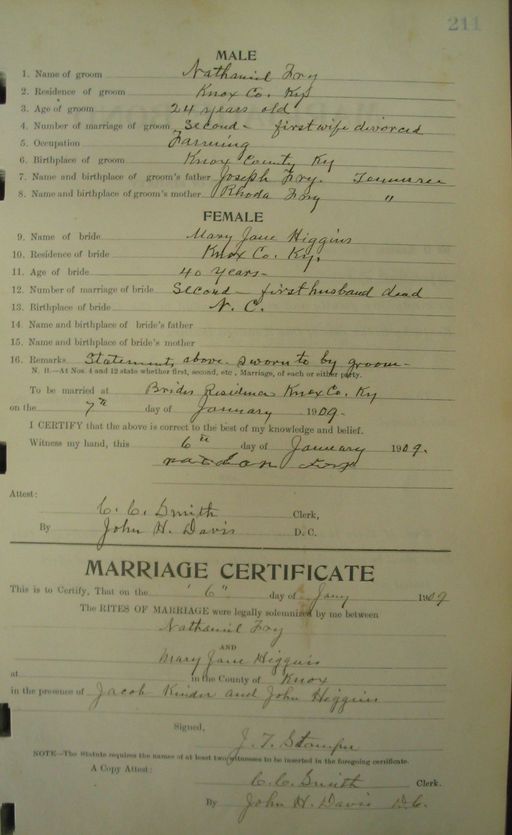 211
MALE
1. Name of groom Nathaniel Fry
2. Residence of groom Knox Co. Ky
3. Age of groom 24 years old
4. Number of marriage of groom Second - first wife divorced
5. Occupation Farming
6. Birthplace of groom Knox County Ky
7. Name and birthplace of groom's father Joseph Fry. Tennessee
8. Name and birthplace of groom's mother Rhoda Fry "
FEMALE
9. Name of bride Mary Jane Higgins
10. Residence of bride Knox Co. Ky.
11. Age of bride 40 years-
12. Number of marriage of bride Second - first husband dead
13. Birthplace of bride N. C.
14. Name and birthplace of bride's father
15. Name and birthplace of bride's mother
16. Remarks Statements above sworn to by groom-
N. B.—At Nos. 4 and 12 state whether first, second, etc., Marriage, of each or either party.
To be married at Brides Residence Knox Co. Ky
on the 7th day of January 1909-
I CERTIFY that the above is correct to the best of my knowledge and belief.
Witness my hand, this 6th day of January 1909.
Attest:
C. C. Smith Clerk,
By John H. Davis D. C.
MARRIAGE CERTIFICATE
This is to Certify, That on the "6" day of Jany 1909
The RITES OF MARRIAGE were legally solemnized by me between
Nathaniel Fry
AND
Mary Jane Higgins
at in the County of Knox
in the presence of Jacob Kinder and John Higgins
Signed,
J. T. Stamper
NOTE—The Statute requires the names of at least two witnesses to be inserted in the foregoing certificate.
A Copy Attest:
C. C. Smith Clerk.
By John H. Davis D.C.